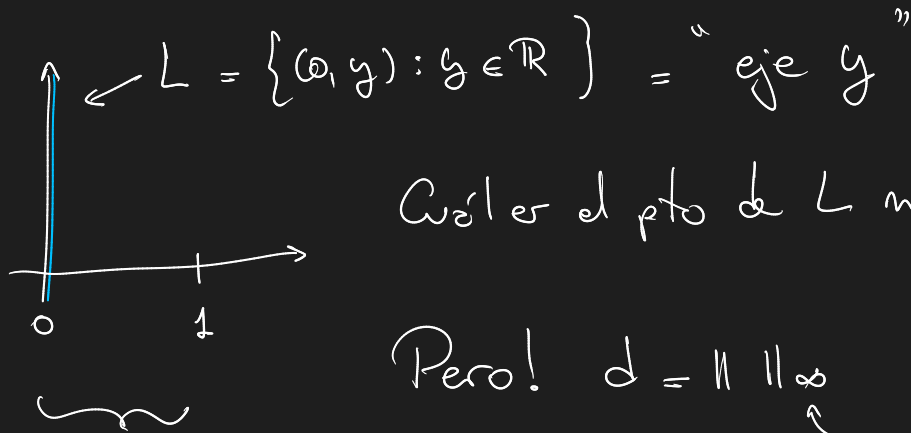 L = {(0, y) : y ∈ ℝ} = "eje y"
Cuál es el pto de L
0 1
Pero! d = || ||∞